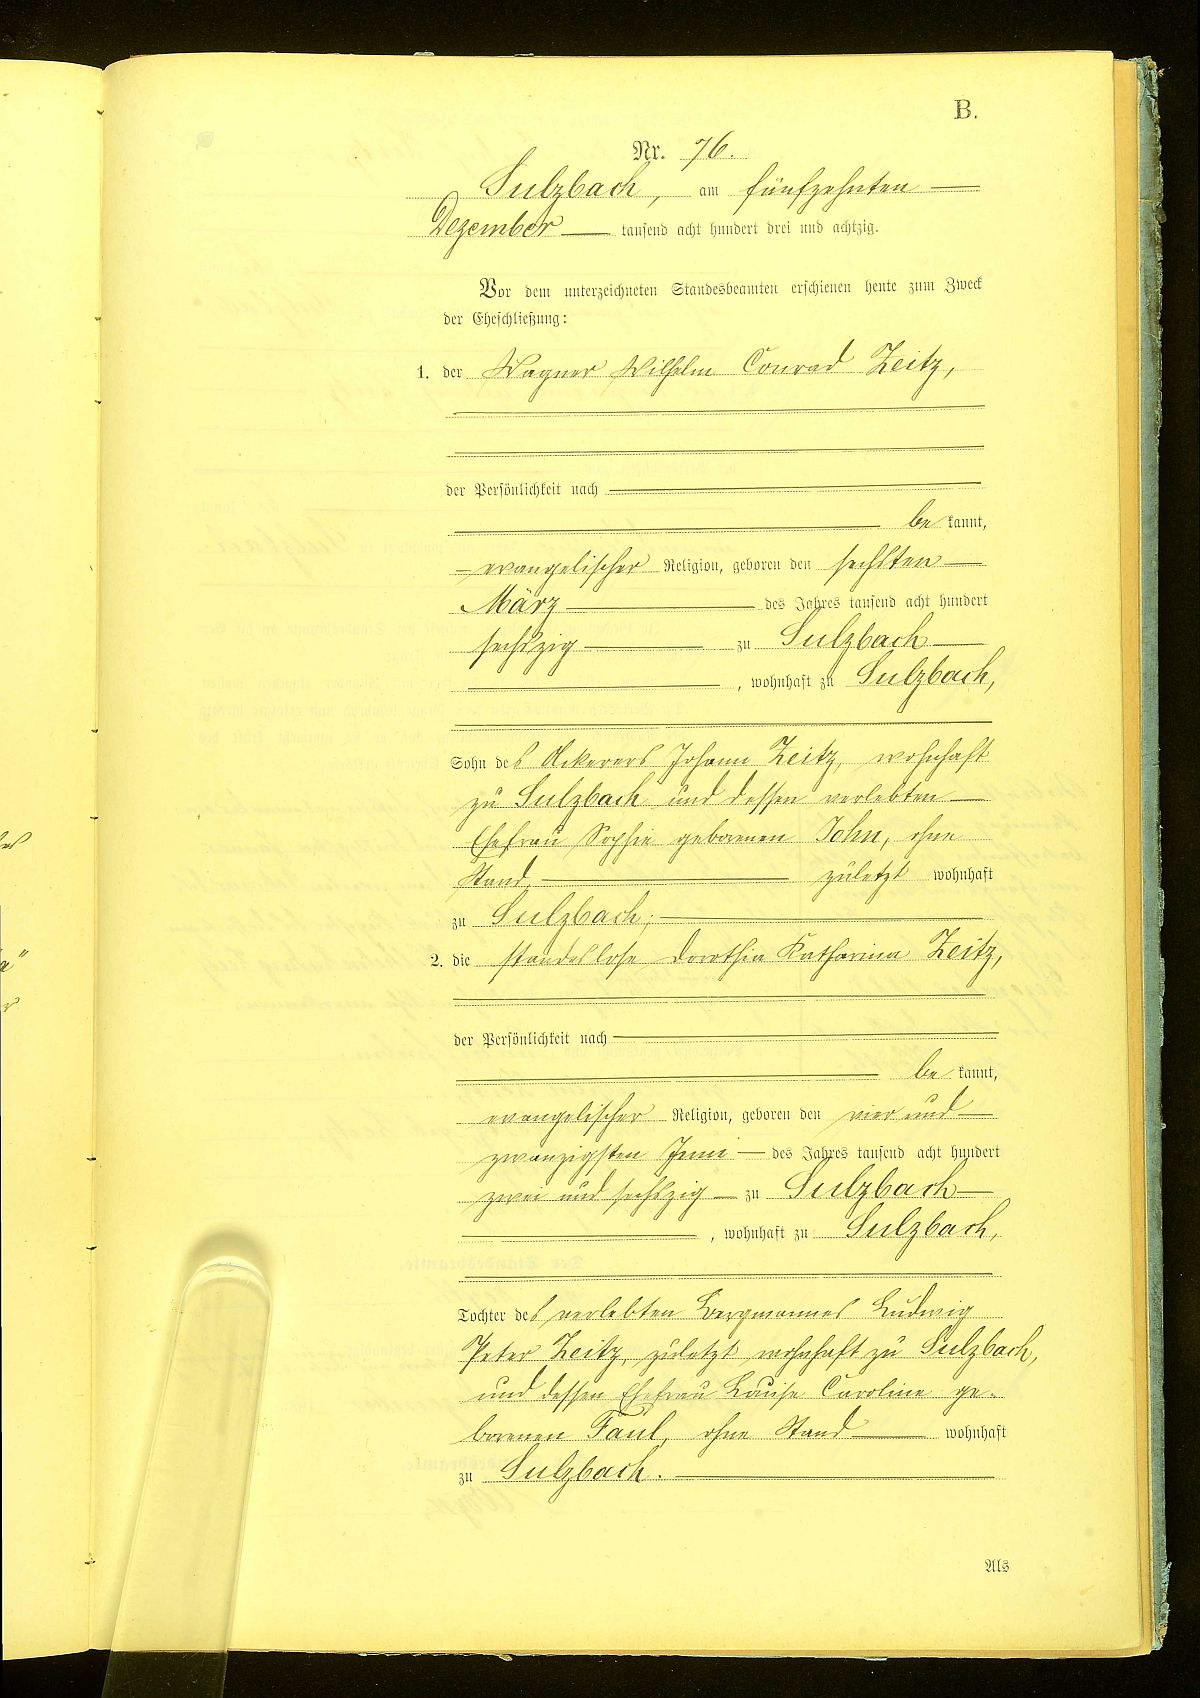 B.
Nr. 76.
Sulzbach, am fünfzehnten
Dezember tausend acht hundert drei und achtzig.
Vor dem unterzeichneten Standesbeamten erschienen heute zum Zweck
der Eheschließung:
1. der Wagner Wilhelm Conrad Zeitz,
der Persönlichkeit nach
be kannt,
evangelischer Religion, geboren den sechsten
März des Jahres tausend acht hundert
sechszig zu Sulzbach
, wohnhaft zu Sulzbach,
Sohn des Ackerers Johann Zeitz, wohnhaft
zu Sulzbach und dessen verlebten
Ehefrau Sophie geborenen John, ohne
Stand, zuletzt wohnhaft
zu Sulzbach;
2. die standeslose Dorothea Katharina Zeitz,
der Persönlichkeit nach
be kannt,
evangelischer Religion, geboren den vier und
zwanzigsten Juni des Jahres tausend acht hundert
zwei und sechszig zu Sulzbach
, wohnhaft zu Sulzbach,
Tochter des verlebten Bergmannes Ludwig
Peter Zeitz, zuletzt wohnhaft zu Sulzbach,
und dessen Ehefrau Louise Caroline ge-
borenen Faul, ohne Stand wohnhaft
zu Sulzbach.
Als